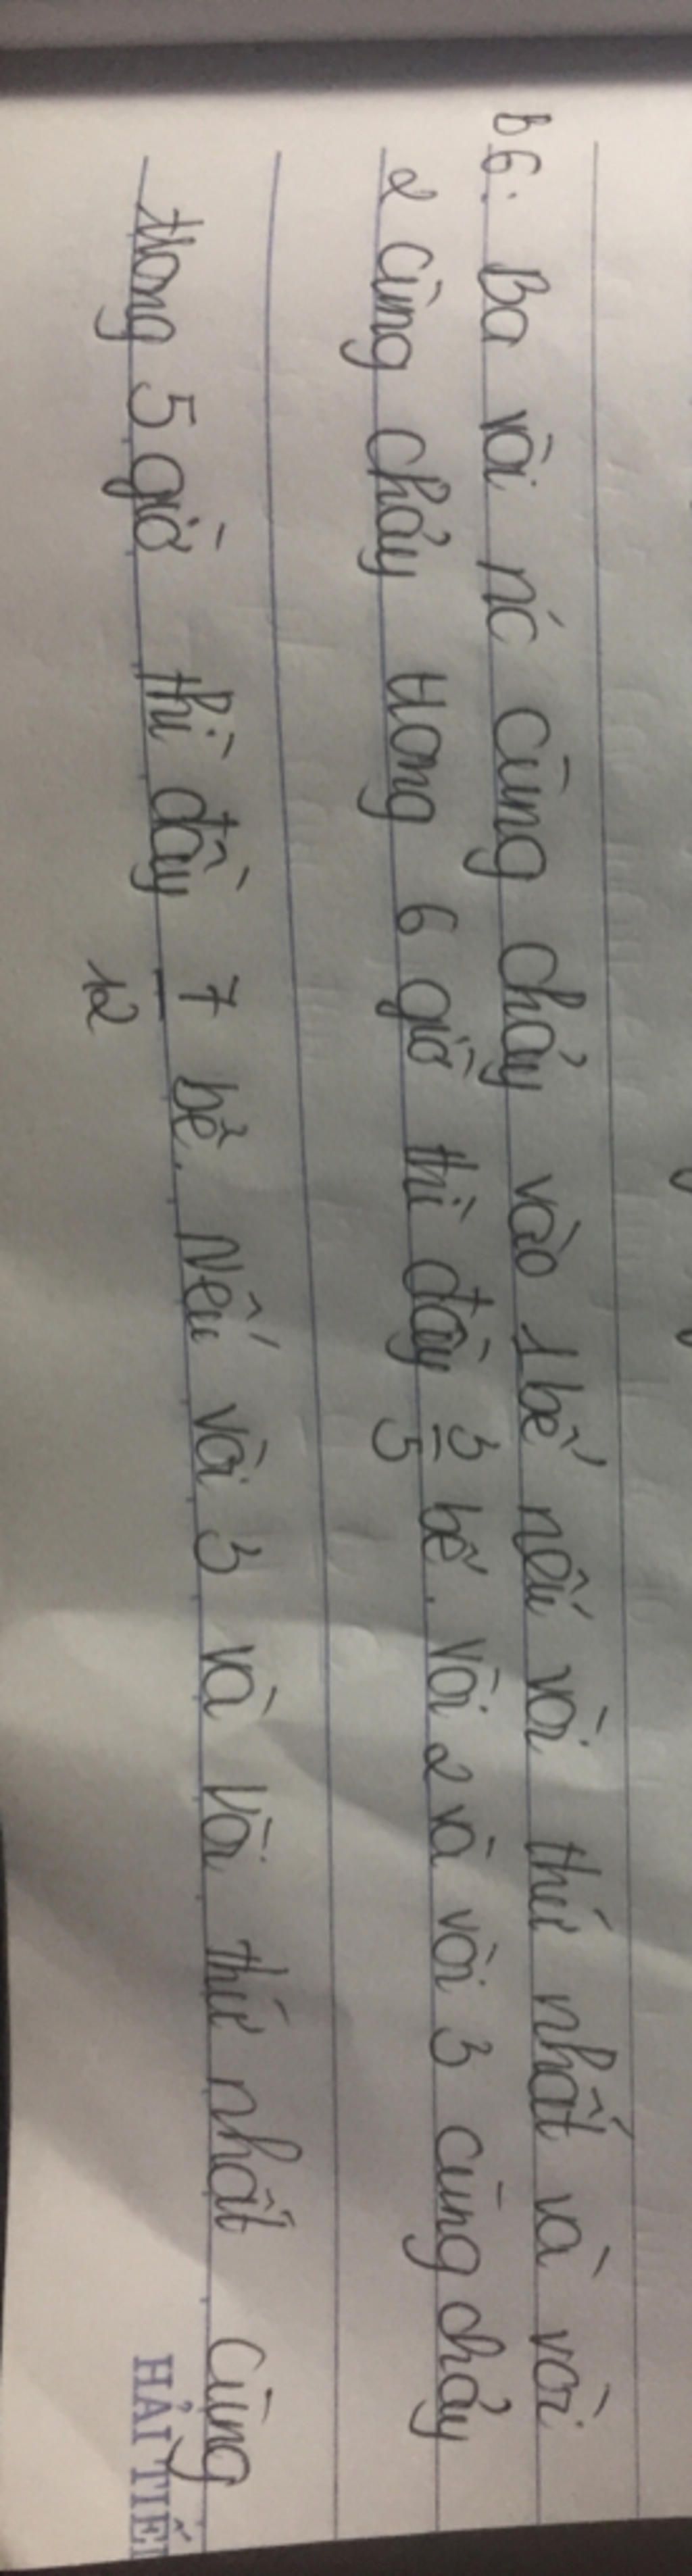 b6: Ba vòi nc cùng chảy vào 1 bể nếu vòi thứ nhất và vòi
2 cùng chảy trong 6 giờ thì đầy 3/5 bể. vòi 2 và vòi 3 cùng chảy
trong 5 giờ thì đầy 7/12 bể. Nếu vòi 3 và vòi thứ nhất cùng
HẢI TIẾ